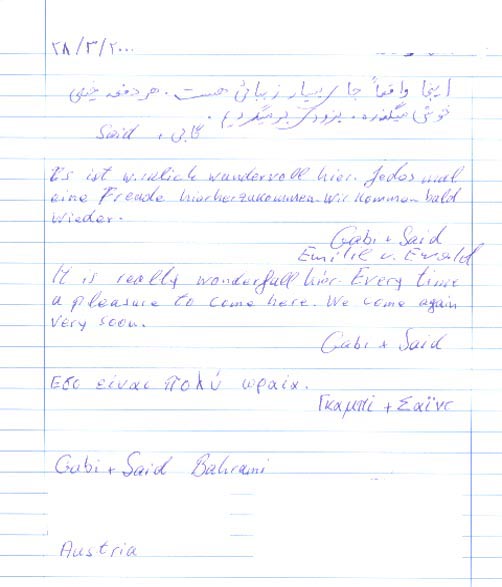 ۲۸/۳/۲۰۰۰
اینجا واقعاً جای بسیار زیبائی هست. هر دفعه خیلی
خوش میگذره. بزودی برمیگردیم.
Said + گابی
Es ist wirklich wundervoll hier. Jedes mal
eine Freude hierherzukommen. Wir kommen bald
wieder.
Gabi + Said
Emilie v. Ewald
It is really wonderfull hier. Every time
a pleasure to come here. We come again
very soon.
Gabi + Said
Εδο είναι πολύ ωραία.
Γκαμπί + Σαΐντ
Gabi + Said Bahrami
Austria